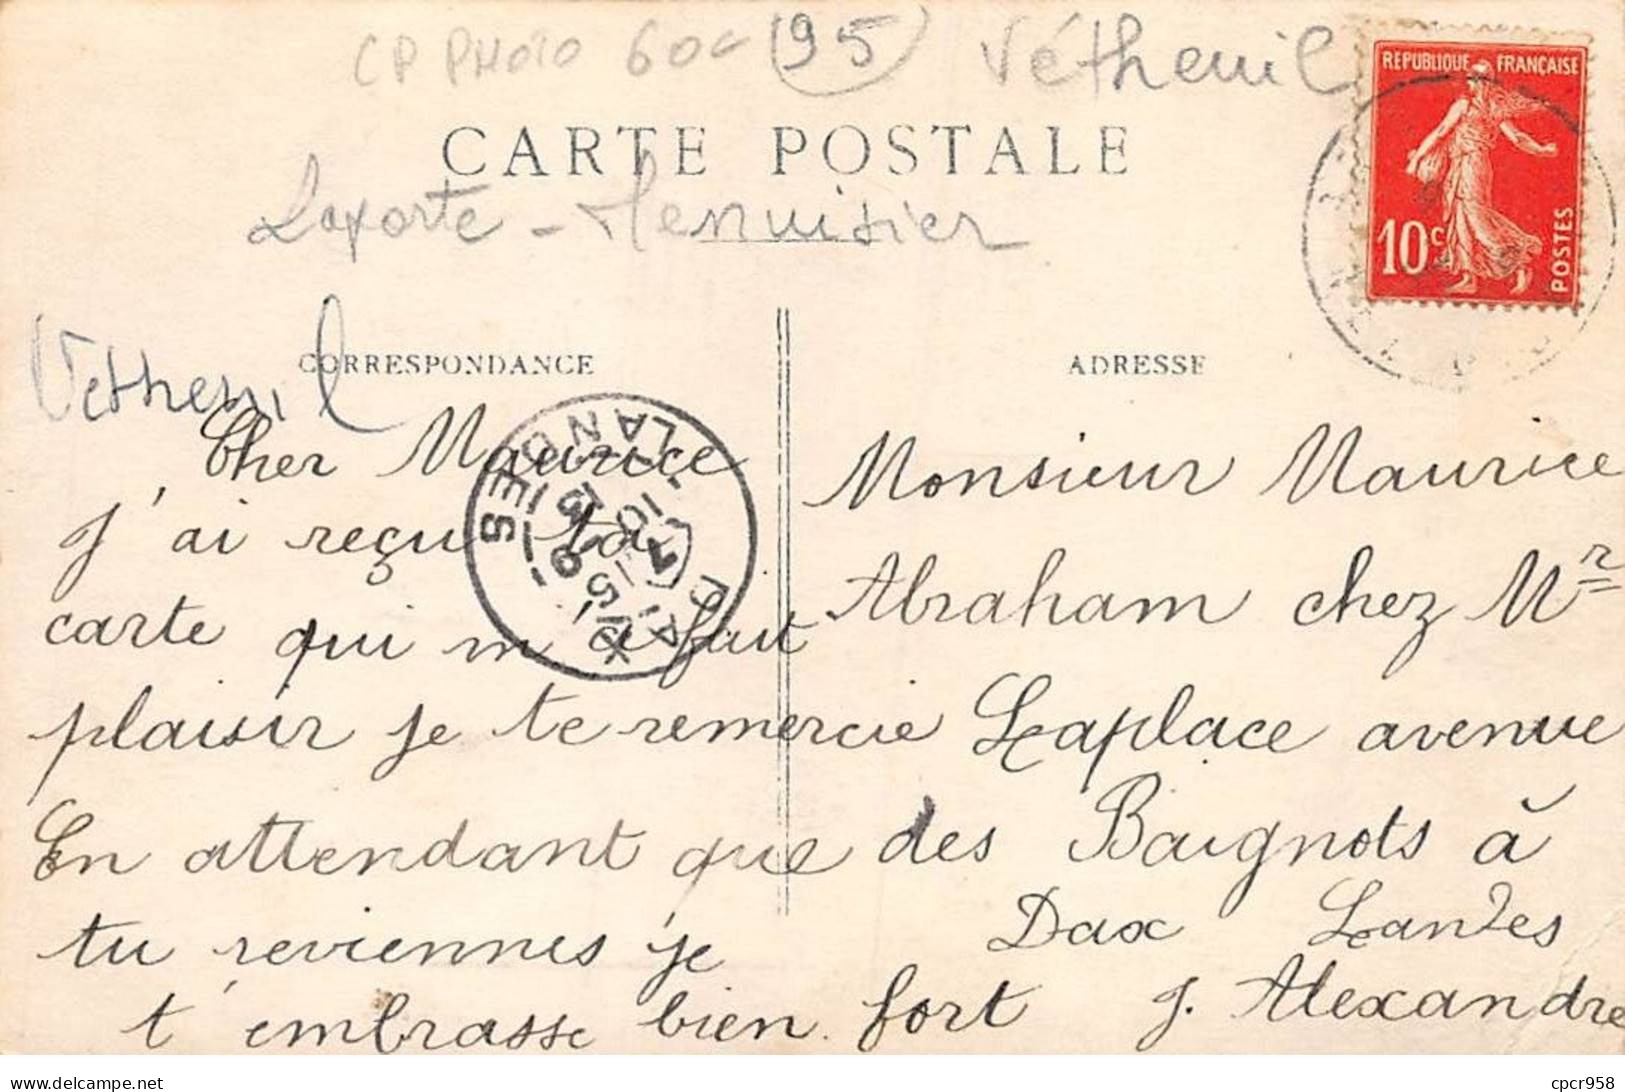 CP PHOTO 60c (95) Vétheuil
REPUBLIQUE FRANÇAISE
10c
POSTES
CARTE POSTALE
Laporte - Menuisier
Vetheuil
CORRESPONDANCE
Cher Maurice
J'ai reçu ta
carte qui m'a fait
plaisir je te remercie
En attendant que
tu reviennes je
t'embrasse bien fort J. Alexandre
ADRESSE
Monsieur Maurice
Abraham chez Mr
Laplace avenue
des Baignots à
Dax Landes
DAX
LANDES
delcampe.net
cpcr958